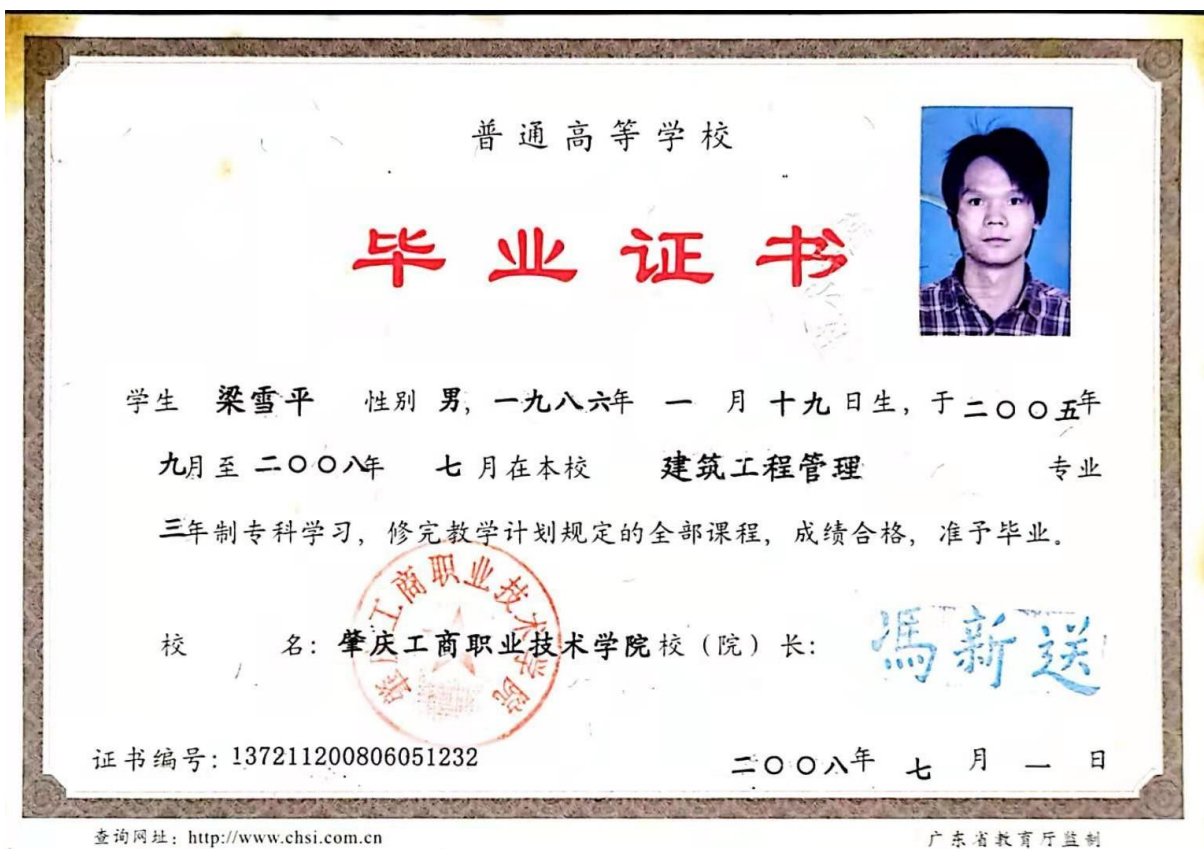 普通高等学校
毕业证书
学生 梁雪平 性别 男, 一九八六年 一 月 十九 日生, 于二〇〇五年
九月至 二〇〇八年 七 月在本校 建筑工程管理 专业
三年制专科学习, 修完教学计划规定的全部课程, 成绩合格, 准予毕业。
肇庆工商职业技术学院
校 名: 肇庆工商职业技术学院 校 (院) 长: 馮新送
证书编号: 137211200806051232 二〇〇八年 七 月 一 日
查询网址: http://www.chsi.com.cn 广东省教育厅监制